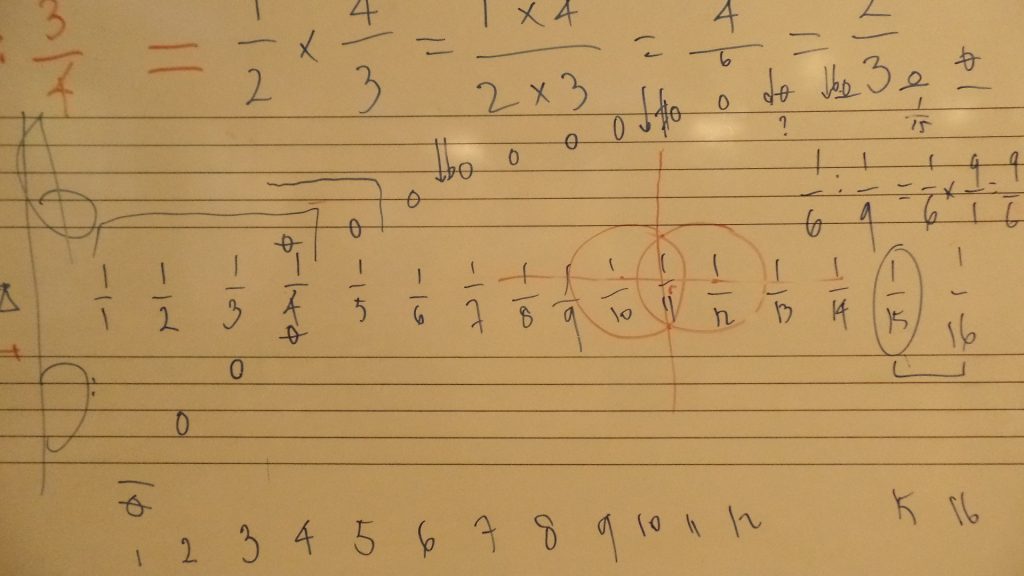 : 3/4 = 1/2 × 4/3 = 1×4/2×3 = 4/6 = 2/3
?
1/15
1/6 : 1/9 = 1/6 × 9/1 = 9/6
1/1 1/2 1/3 1/4 1/5 1/6 1/7 1/8 1/9 1/10 1/11 1/12 1/13 1/14 1/15 1/16
1 2 3 4 5 6 7 8 9 10 11 12 15 16